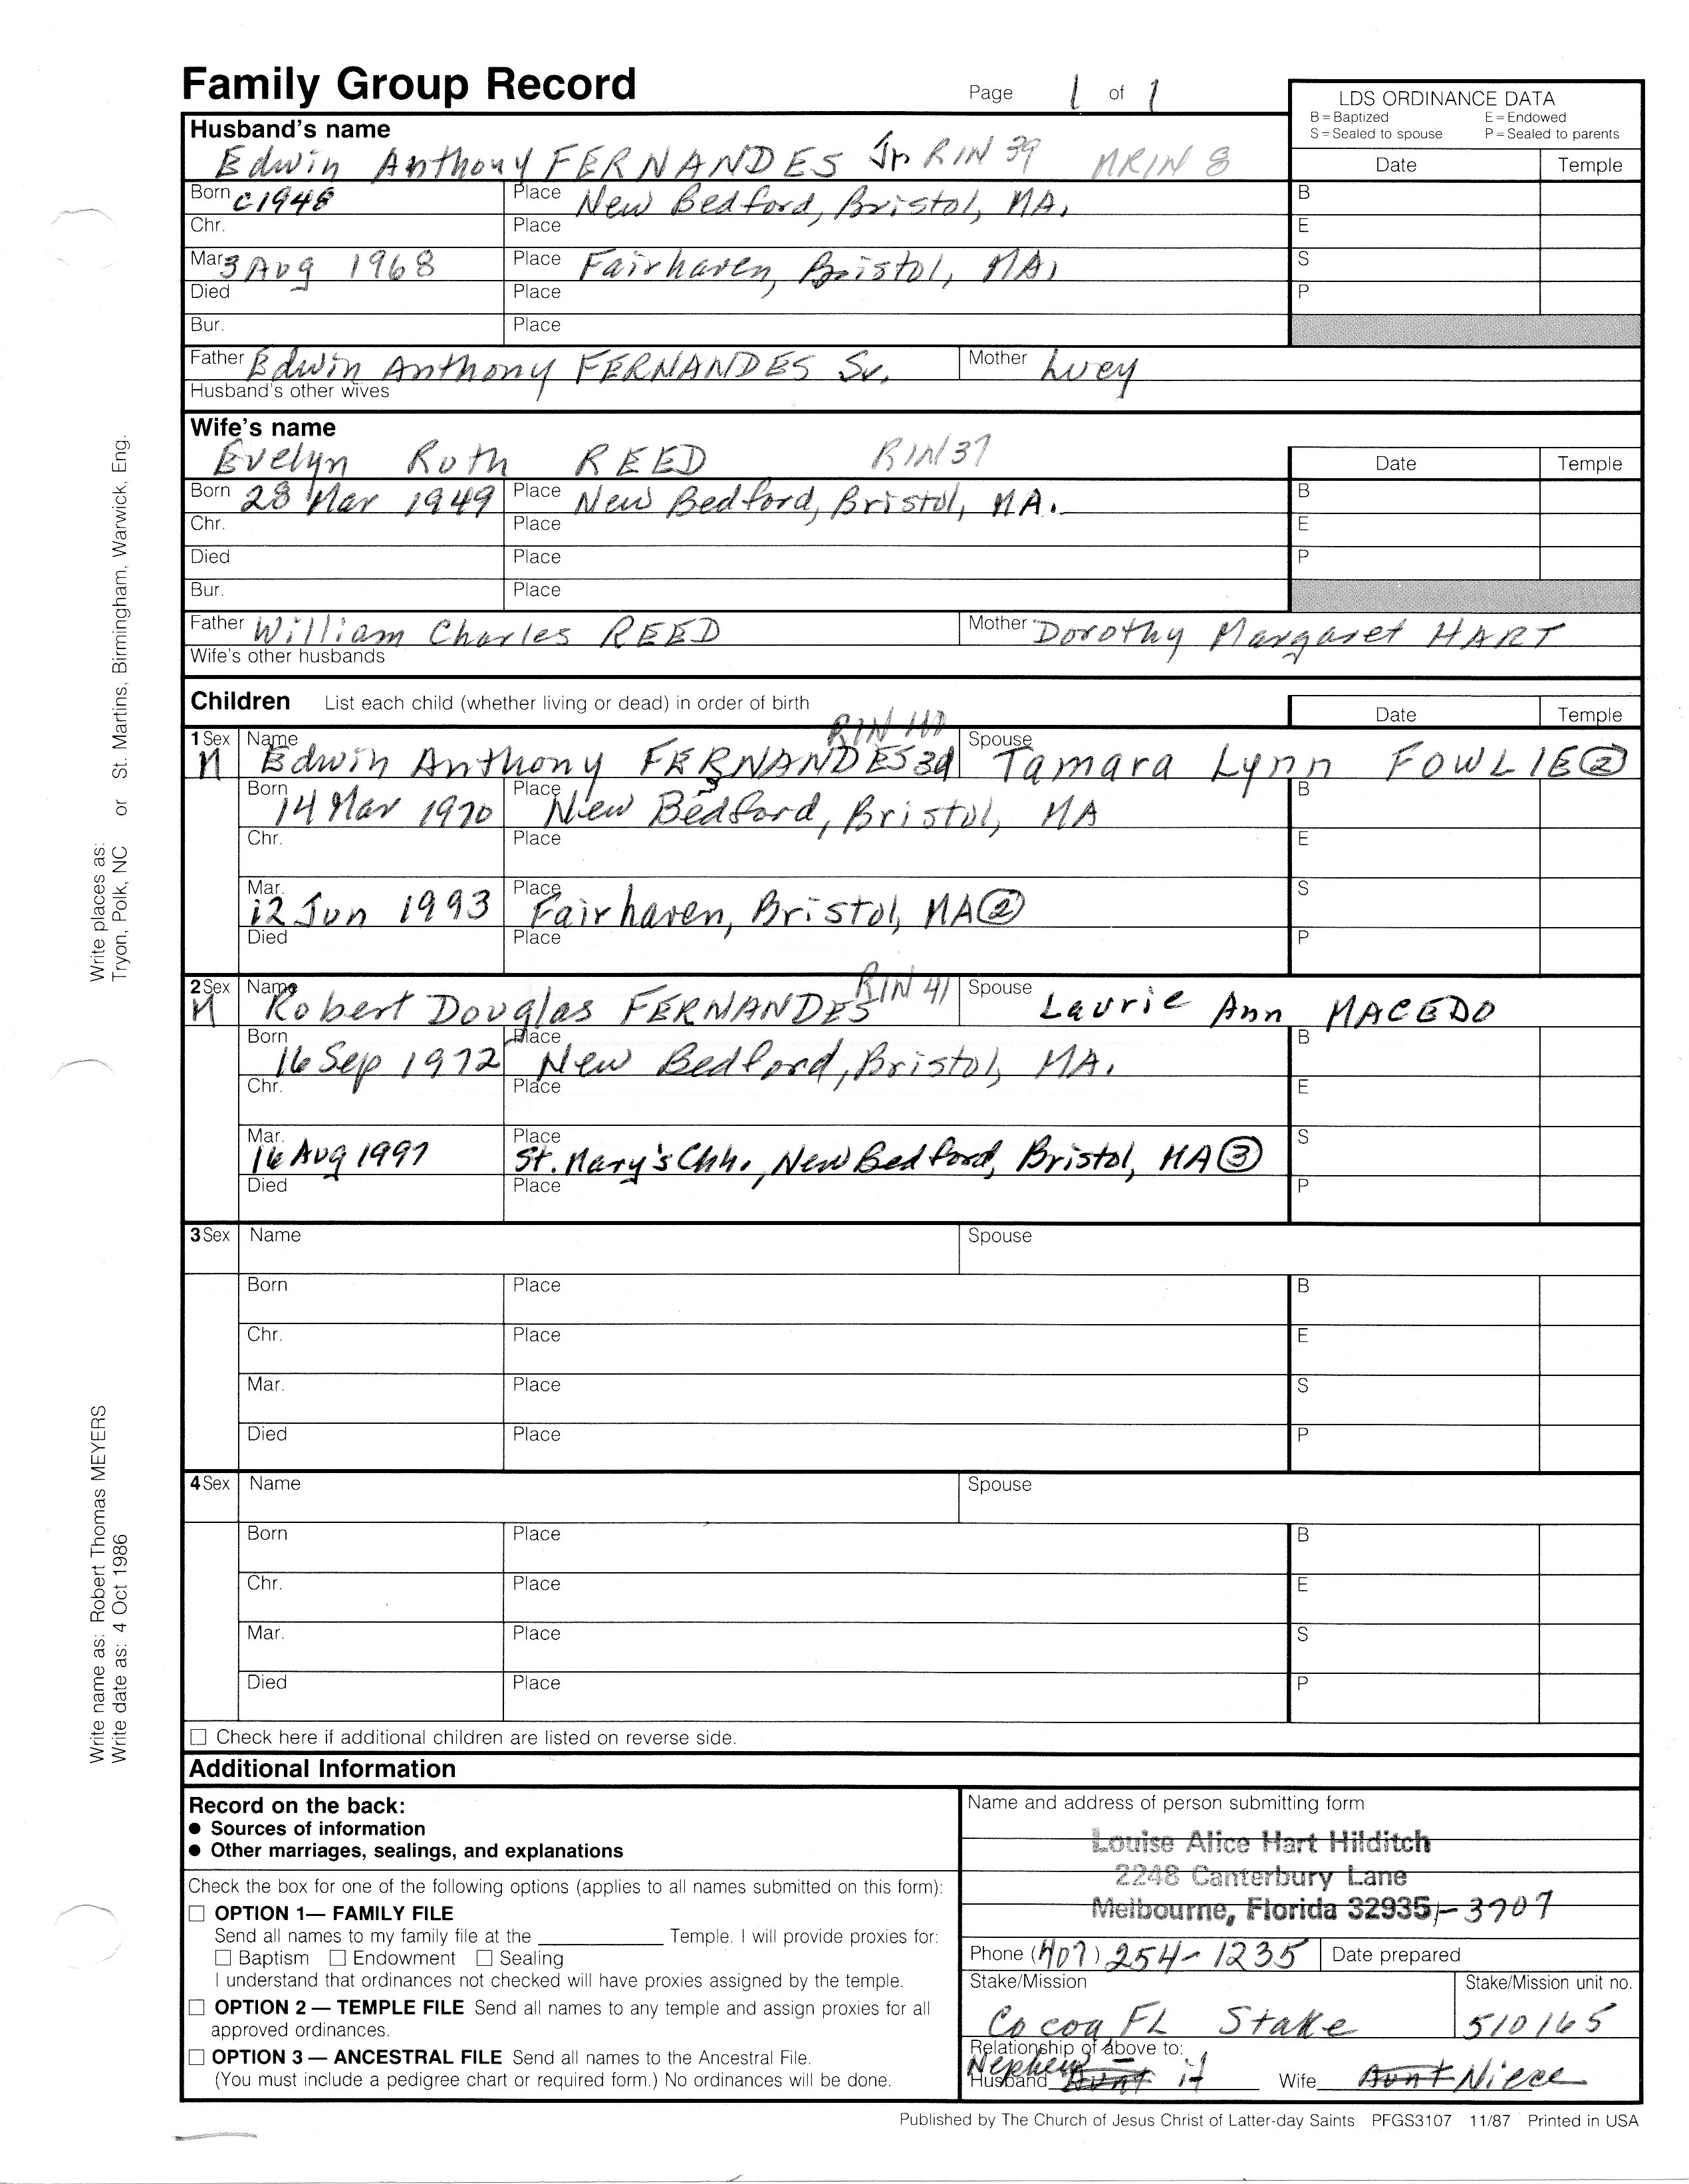 Family Group Record
Page 1 of 1
LDS ORDINANCE DATA
B = Baptized E = Endowed
S = Sealed to spouse P = Sealed to parents
Husband's name
Edwin Anthony FERNANDES Jr RIN 39 MRIN 8
Date Temple
Born c1948 Place New Bedford, Bristol, MA. B
Chr. Place E
Mar 3 Aug 1968 Place Fairhaven, Bristol, MA. S
Died Place P
Bur. Place
Father Edwin Anthony FERNANDES Sr. Mother Lucy
Husband's other wives
Wife's name
Evelyn Ruth REED RIN 37
Date Temple
Born 28 Mar 1949 Place New Bedford, Bristol, MA. B
Chr. Place E
Died Place P
Bur. Place
Father William Charles REED Mother Dorothy Margaret HART
Wife's other husbands
Children List each child (whether living or dead) in order of birth
Date Temple
RIN 40
1 Sex Name Spouse
M Edwin Anthony FERNANDES 3d Tamara Lynn FOWLIE ②
Born 14 Mar 1970 Place New Bedford, Bristol, MA B
Chr. Place E
Mar. 12 Jun 1993 Place Fairhaven, Bristol, MA ② S
Died Place P
2 Sex Name RIN 41 Spouse
M Robert Douglas FERNANDES Laurie Ann MACEDO
Born 16 Sep 1972 Place New Bedford, Bristol, MA. B
Chr. Place E
Mar. 16 Aug 1997 Place St. Mary's Chh., New Bedford, Bristol, MA ③ S
Died Place P
3 Sex Name Spouse
Born Place B
Chr. Place E
Mar. Place S
Died Place P
4 Sex Name Spouse
Born Place B
Chr. Place E
Mar. Place S
Died Place P
☐ Check here if additional children are listed on reverse side.
Additional Information
Record on the back:
● Sources of information
● Other marriages, sealings, and explanations
Check the box for one of the following options (applies to all names submitted on this form):
☐ OPTION 1— FAMILY FILE
Send all names to my family file at the ____________ Temple. I will provide proxies for:
☐ Baptism ☐ Endowment ☐ Sealing
I understand that ordinances not checked will have proxies assigned by the temple.
☐ OPTION 2 — TEMPLE FILE Send all names to any temple and assign proxies for all
approved ordinances.
☐ OPTION 3 — ANCESTRAL FILE Send all names to the Ancestral File.
(You must include a pedigree chart or required form.) No ordinances will be done.
Name and address of person submitting form
Louise Alice Hart Hilditch
2248 Canterbury Lane
Melbourne, Florida 32935-3707
Phone (407) 254-1235 Date prepared
Stake/Mission Stake/Mission unit no.
Cocoa FL Stake 510165
Relationship of above to:
Husband Nephew - Aunt Wife Aunt Niece
Published by The Church of Jesus Christ of Latter-day Saints PFGS3107 11/87 Printed in USA
Write places as: St. Martins, Birmingham, Warwick, Eng.
Tryon, Polk, NC or
Write name as: Robert Thomas MEYERS
Write date as: 4 Oct 1986